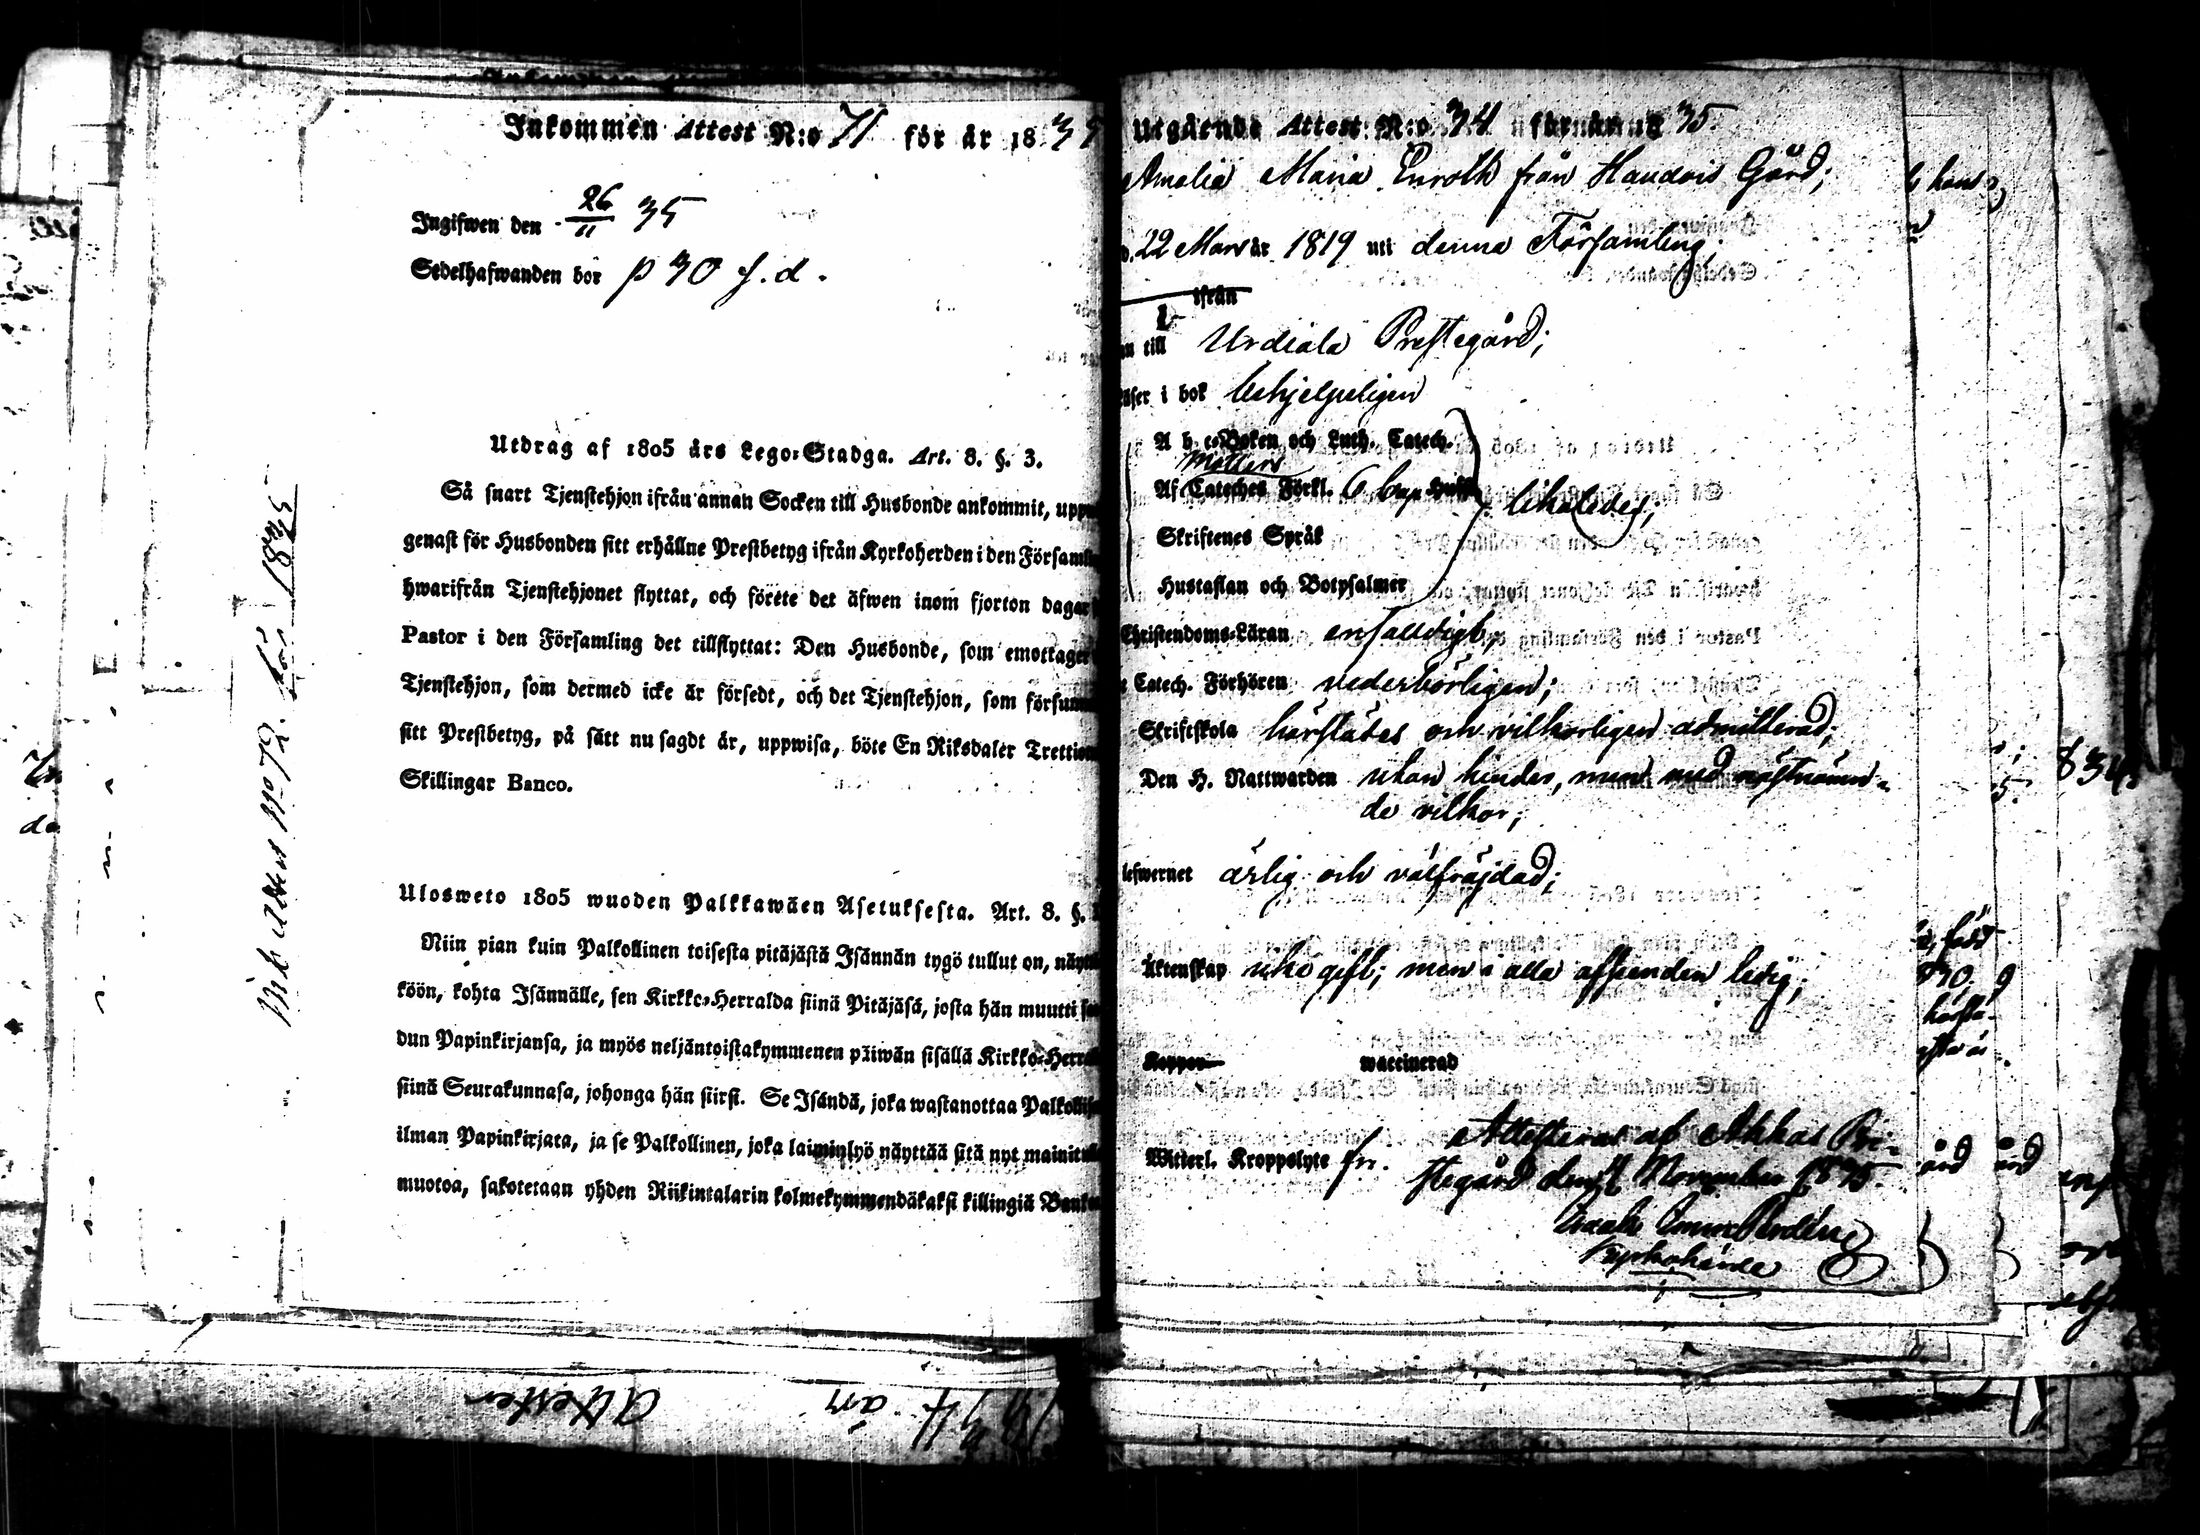 Inkommen Attest N:o 71 för år 1835
Ingifwen den 26/11 35
Sedelhafwanden bor p 30 f.d.
Utdrag af 1805 års Lego-Stadga. Art. 8. §. 3.
Så snart Tjenstehjon ifrån annan Socken till Husbonde ankommit, upp
genast för Husbonden sitt erhållne Prestbetyg ifrån Kyrkoherden i den Församl
hwarifrån Tjenstehjonet flyttat, och förete det äfwen inom fjorton dagar
Pastor i den Församling det tillflyttat: Den Husbonde, som emottager
Tjenstehjon, som dermed icke är försedt, och det Tjenstehjon, som försum
sitt Prestbetyg, på sätt nu sagdt är, uppwisa, böte En Riksdaler Trettio
Skillingar Banco.
Ulosweto 1805 wuoden Palkkawäen Asetuksesta. Art. 8. §.
Niin pian kuin Palkollinen toisesta pitäjästä Isännän tygö tullut on, näyt
köön, kohta Isännälle, sen Kirkko-Herralda siinä Pitäjäsä, josta hän muutti sa
dun Papinkirjansa, ja myös neljäntoistakymmenen päiwän sisällä Kirkko-Herra
siinä Seurakunnasa, johonga hän siirsi. Se Isändä, joka wastanottaa Palkollis
ilman Papinkirjata, ja se Palkollinen, joka laiminlyö näyttää sitä nyt mainitulla
muotoa, sakotetaan yhden Riikintalarin kolmekymmendäkaksi killingiä Banko
Utgående Attest N:o 34 för år 1835.
Amalia Maria Enroth från Haudois Gård;
22 Mars år 1819 uti denna Församling;
ifrån
till Urdiala Prestegård;
läser i bok behjelpeligen
A b c-Boken och Luth. Catech.
Möllers
Af Cateches Förkl. 6 Cap likaledes;
Skriftenes Språk
Hustaflan och Botpsalmer
Christendoms-Läran enfaldigt;
Catech. Förhören vederbörligen;
Skriftskola härstädes och vilkorligen admitterad;
Den H. Nattwarden utan hinder, men med nästnämn-
de vilkor;
lefwernet ärlig och välfräjdad;
Äktenskap icke gift; men i alla afseenden ledig;
Koppor waccinerad
Witterl. Kroppslyte fri.
Attesteras af Akkas Pre-
stegård den November 1835.
Kyrkoherde